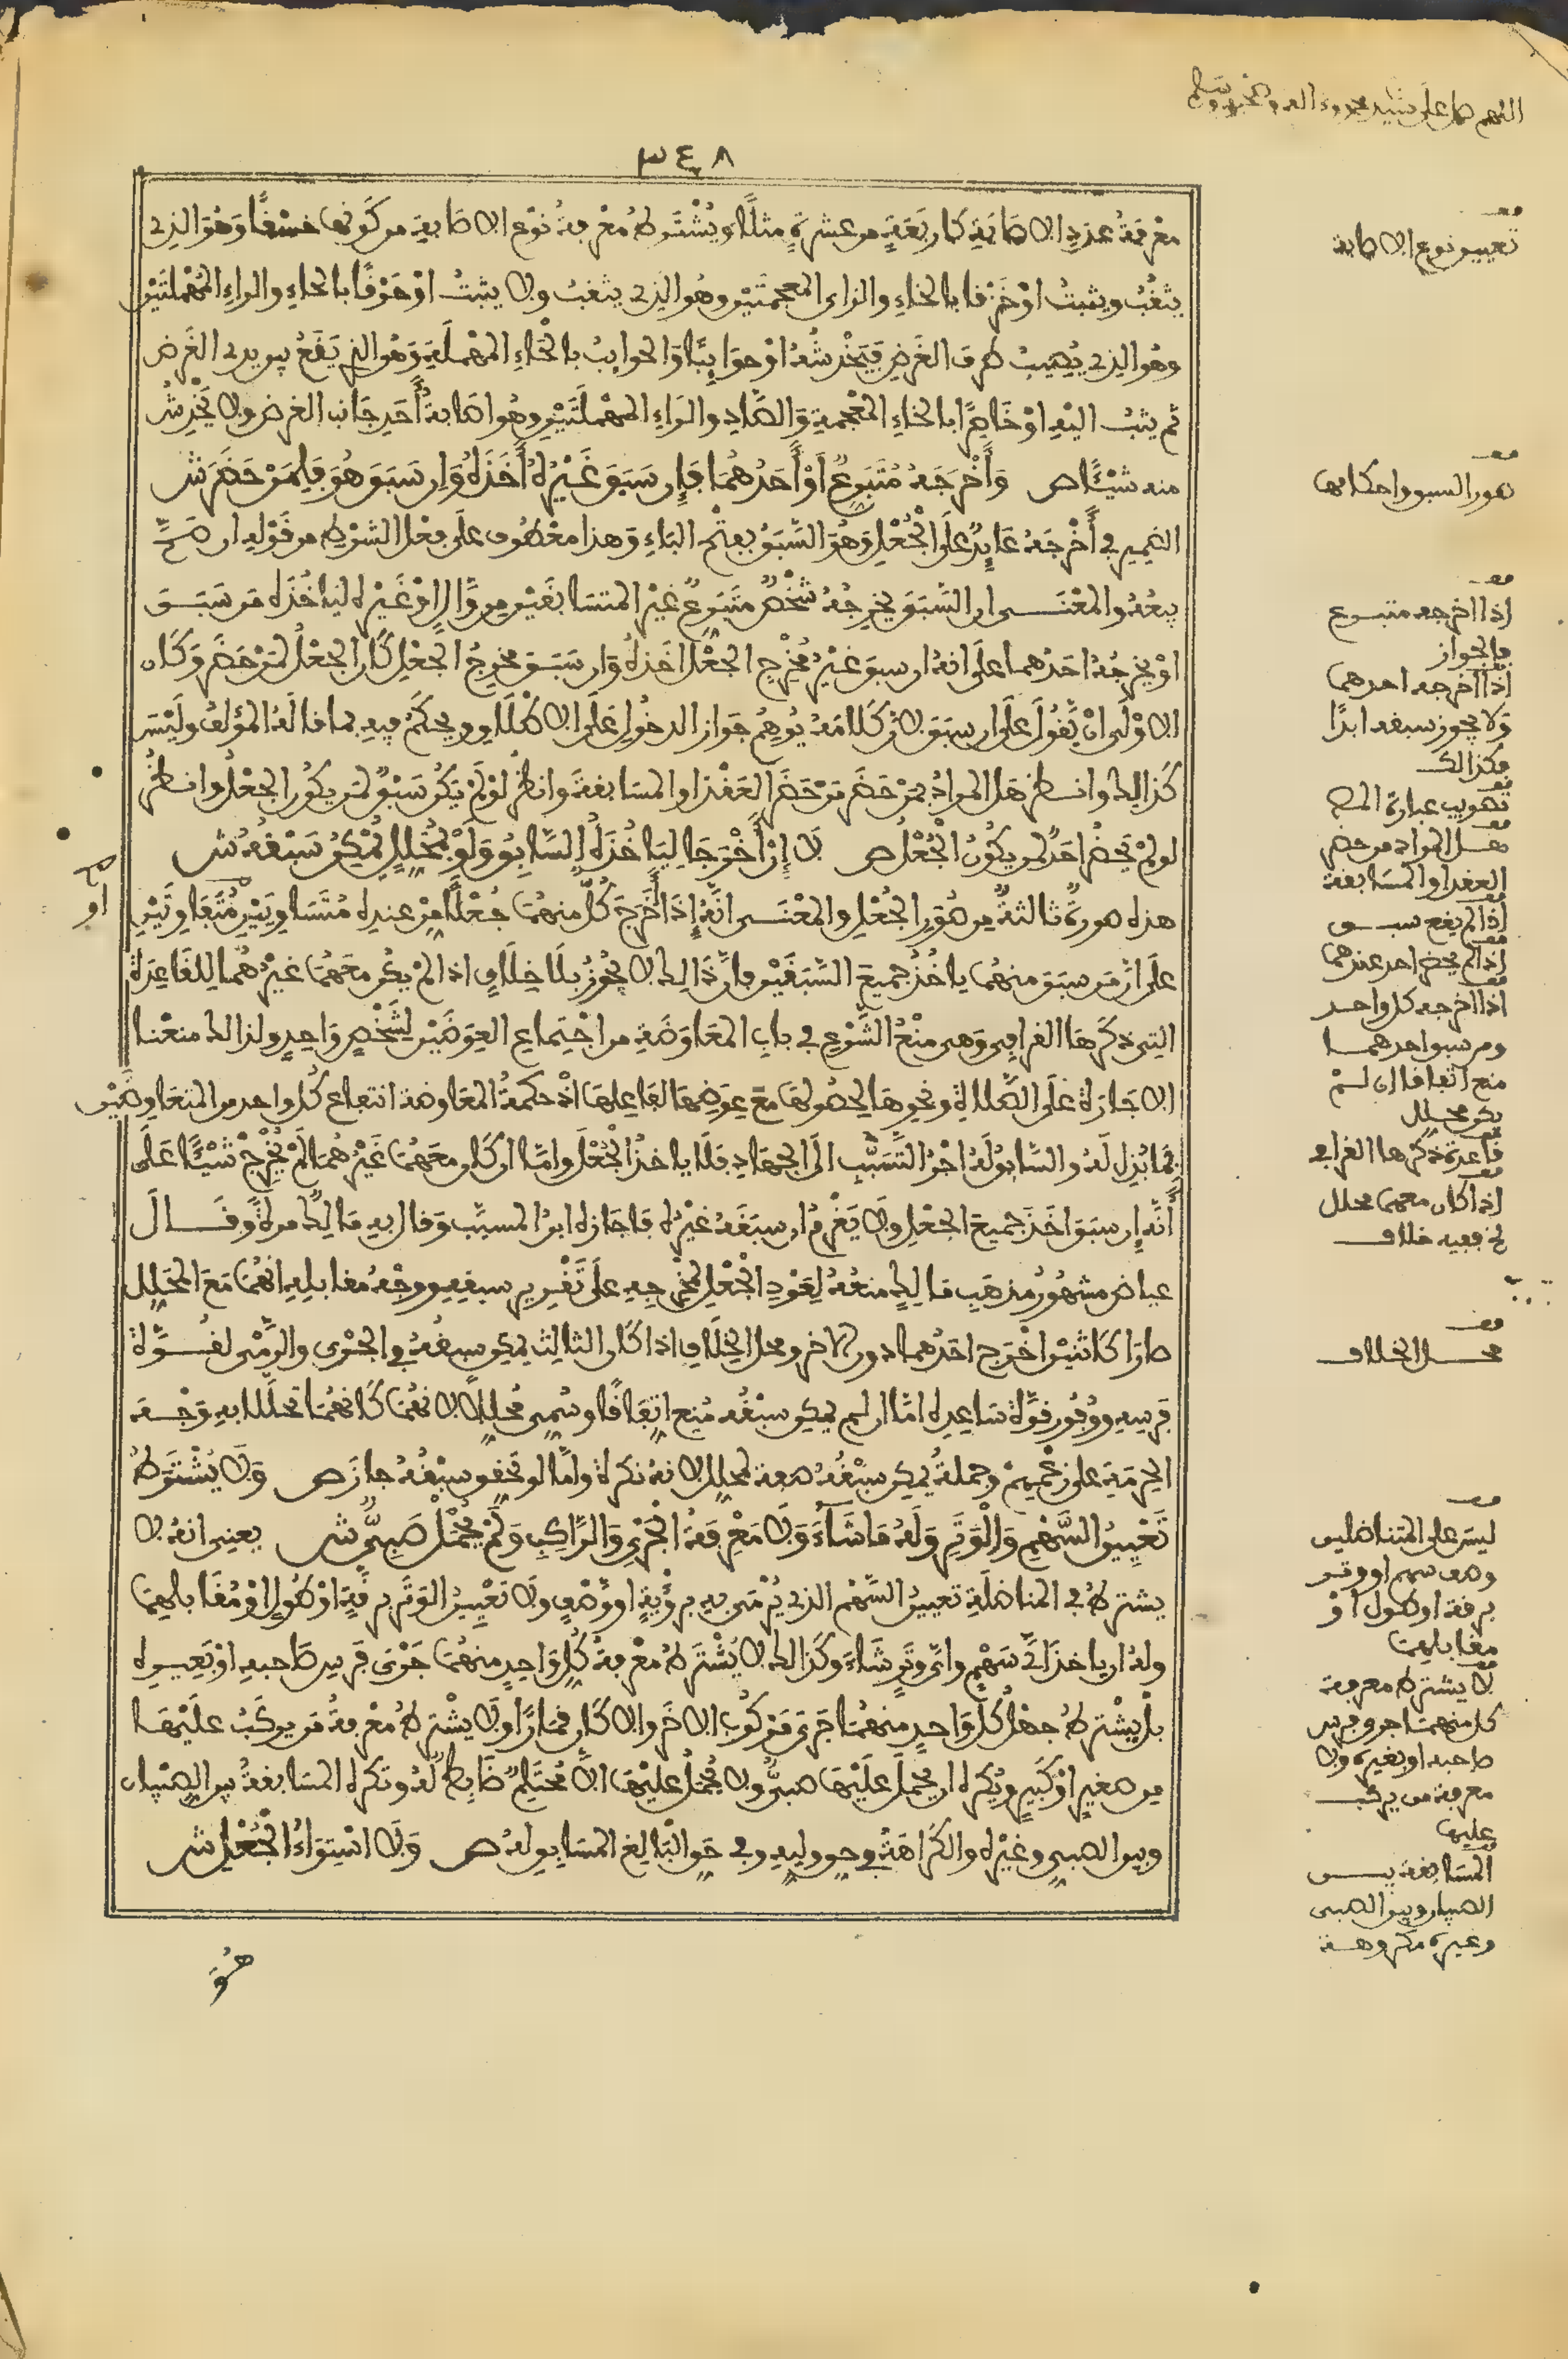 اللهم صل على سيدنا محمد وءاله وصحبه وسلم
٣٤٨
معرفة عدد الاصابة كاربعة من عشرة مثلا ويشترط معرفة نوع الاصابة من كونها خسفا وهو الذي
يثقب ويثبت او خزقا بالخاء والزاي المعجمتين وهو الذي يثقب ولا يثبت او خرقا بالخاء والراء المهملتين
وهو الذي يصيب طرف الغرض فيخدشه او حوابيا والحوابي بالحاء المهملة وهو الذي يقع بين يدي الغرض
ثم يثب اليه او خاصرا بالخاء المعجمة والصاد والراء المهملتين وهو اصابة احد جانب الغرض ولا يخدش
منه شيئا ص وَأَخْرَجَهُ مُتَبَرِّعٌ أَوْ أَحَدُهُمَا فَإِن سَبَقَ غَيْرُهُ أَخَذَهُ وَإِن سَبَقَ هُوَ فَلِمَنْ حَضَرَ ش
الضمير في أخرجه عائد على الجعل وهو السبق بفتح الباء وهذا معطوف على فعل الشرط من قوله ان صح
بيعه والمعنى ان السبق يخرجه شخص متبرع غير المتسابقين من وال او غيره لياخذه من سبق
او يخرجه احدهما على انه ان سبق غير مخرج الجعل اخذه وان سبق مخرج الجعل كان الجعل لمن حضر وكان
الاولى ان يقول على ان سبق لان كلامه يوهم جواز الدخول على الاطلاق ويحكم فيه بما قاله المؤلف وليس
كذالك وانظر هل المراد بمن حضر من حضر العقد او المسابقة وانظر لو لم يكن سبق لمن يكون الجعل وانظر
لو لم يحضر احد لمن يكون الجعل ص لَا إِنْ أَخْرَجَا لِيَأْخُذَهُ السَّابِقُ وَلَوْ بِمُحَلِّلٍ يُمْكِنُ سَبْقُهُ ش
هذه صورة ثالثة من صور الجعل والمعنى انه اذا اخرج كل منهما جعلا من عنده متساويين او متفاوتين
على ان من سبق منهما ياخذ جميع السبقين فان ذالك لا يجوز بلا خلاف اذا لم يكن معهما غيرهما للقاعدة
التي ذكرها القرافي وهي منع الشرع في باب المعاوضة من اجتماع العوضين لشخص واحد ولذالك منعنا
الاجازة على الصلاة ونحوها لحصولها مع عوضها لفاعلها اذ حكمة المعاوضة انتفاع كل واحد من المتعاوضين
بما بذل له والسابق له اجر التسبب الى الجهاد فلا ياخذ الجعل واما ان كان معهما غيرهما لم يخرج شيئا على
أنه ان سبق اخذ جميع الجعل ولا يغرم ان سبقه غيره فاجازه ابن المسيب وقال به مالك مرة وقال
عياض مشهور مذهب مالك منعه لعود الجعل لمخرجه على تقدير سبقه ووجه مقابله انهما مع المحلل
صارا كاثنين اخرج احدهما دون الاخر ومحل الخلاف اذا كان الثالث يمكن سبقه في الجري والرمي لقوة
فرسه ووفور قوة ساعده اما ان لم يمكن سبقه منع اتفاقا وسمي محللا لانهما كانهما تحللا به وجه
الحرمة على زعمهم وجملة يمكن سبقه صفة لمحلل لانه نكرة واما لو تحقق سبقه جاز ص وَلَا يُشْتَرَطُ
تَعْيِينُ السَّهْمِ وَالْوَتَرِ وَلَهُ مَا شَاءَ وَلَا مَعْرِفَةُ الْجَرْيِ وَالرَّاكِبِ وَلَمْ يُحْمَلْ صَبِيٌّ ش يعني انه لا
يشترط في المناضلة تعيين السهم الذي يرمي به برؤية او وصف ولا تعيين الوتر برقة او طول او مقابلهما
وله ان ياخذ اي سهم واي وتر شاء وكذالك لا يشترط معرفة كل واحد منهما جرى فرس صاحبه او بعيره
بل يشترط جهل كل واحد منهما جري مركوب الاخر والا كان قمارا ولا يشترط معرفة من يركب عليهما
من صغير او كبير ويكره ان يحمل عليهما صبي ولا يحمل عليهما الا محتلم ضابط له وتكره المسابقة بين الصبيان
وبين الصبي وغيره والكراهة في حق وليه وفي حق البالغ المسابق له ص وَلَا اسْتِوَاءُ الْجُعْلِ ش
هو
تعيين نوع الاصابة
صور السبق واحكامها
اذا اخرجه متبرع
فالجواز
اذا اخرجه احدهما
ولا يجوز سبقه ابدا
فكذالك
تصويب عبارة المص
هل المراد من حضر
العقد او المسابقة
اذا لم يقع سبق
اذا لم يحضر احد عندهما
اذا اخرجه كل واحد
ومن سبق احدهما
منع اتفاقا ان لم
يكن محلل
قاعدة ذكرها القرافي
اذا كان معهما محلل
ففيه خلاف
محل الخلاف
ليس على المتناضلين
وصف سهم او وتر
برقة او طول او
مقابلهما
لا يشترط معرفة
كل منهما جري فرس
صاحبه او بعيره ولا
معرفة من يركب
عليها
المسابقة بين
الصبيان وبين الصبي
وغيره مكروهة
صح
او